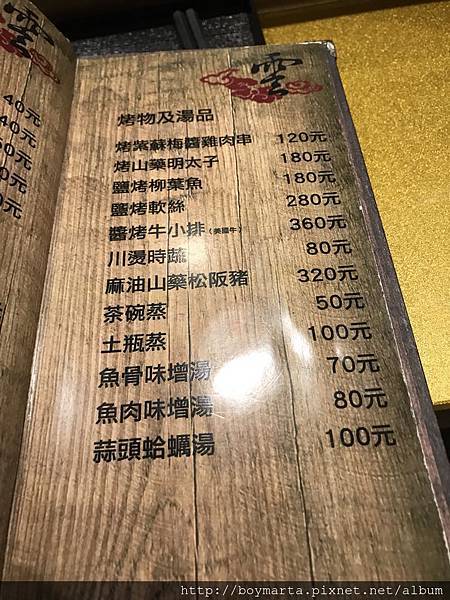 雲
烤物及湯品
烤紫蘇梅醬雞肉串 120元
烤山藥明太子 180元
鹽烤柳葉魚 180元
鹽烤軟絲 280元
醬烤牛小排(美國牛) 360元
川燙時蔬 80元
麻油山藥松阪豬 320元
茶碗蒸 50元
土瓶蒸 100元
魚骨味增湯 70元
魚肉味增湯 80元
蒜頭蛤蠣湯 100元
雲
40元
40元
0元
0元
0元
http://boymarta.pixnet.net/album